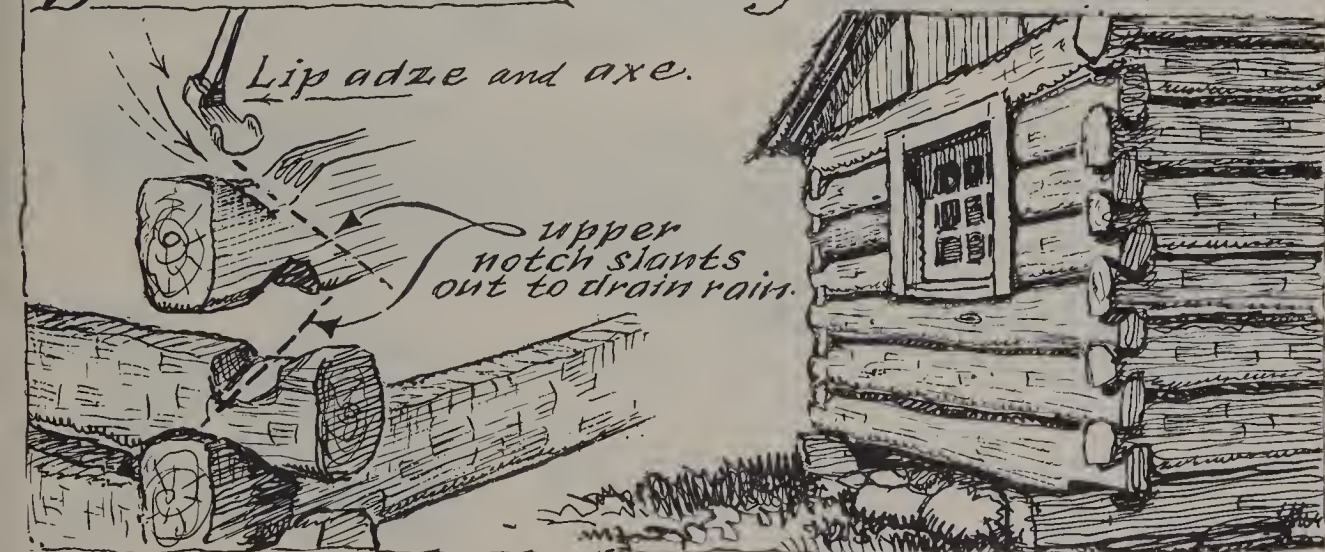 Lip adze and axe.
upper
notch slants
out to drain rain.